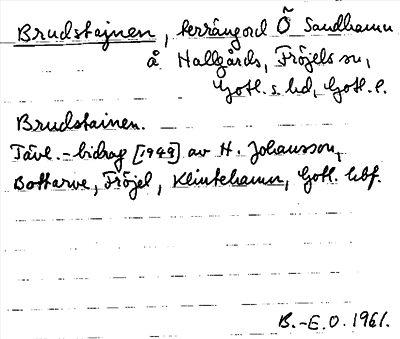 Brudstajnen, terrängord Ö Sandhamn
å Hallgårds, Fröjels sn,
Gotl. s. hd, Gotl. l.
Brudstainen.
Tävl.-bidrag [1949] av H. Johansson,
Bottarve, Fröjel, Klintehamn, Gotl. hbf.
B.-E.O. 1961.